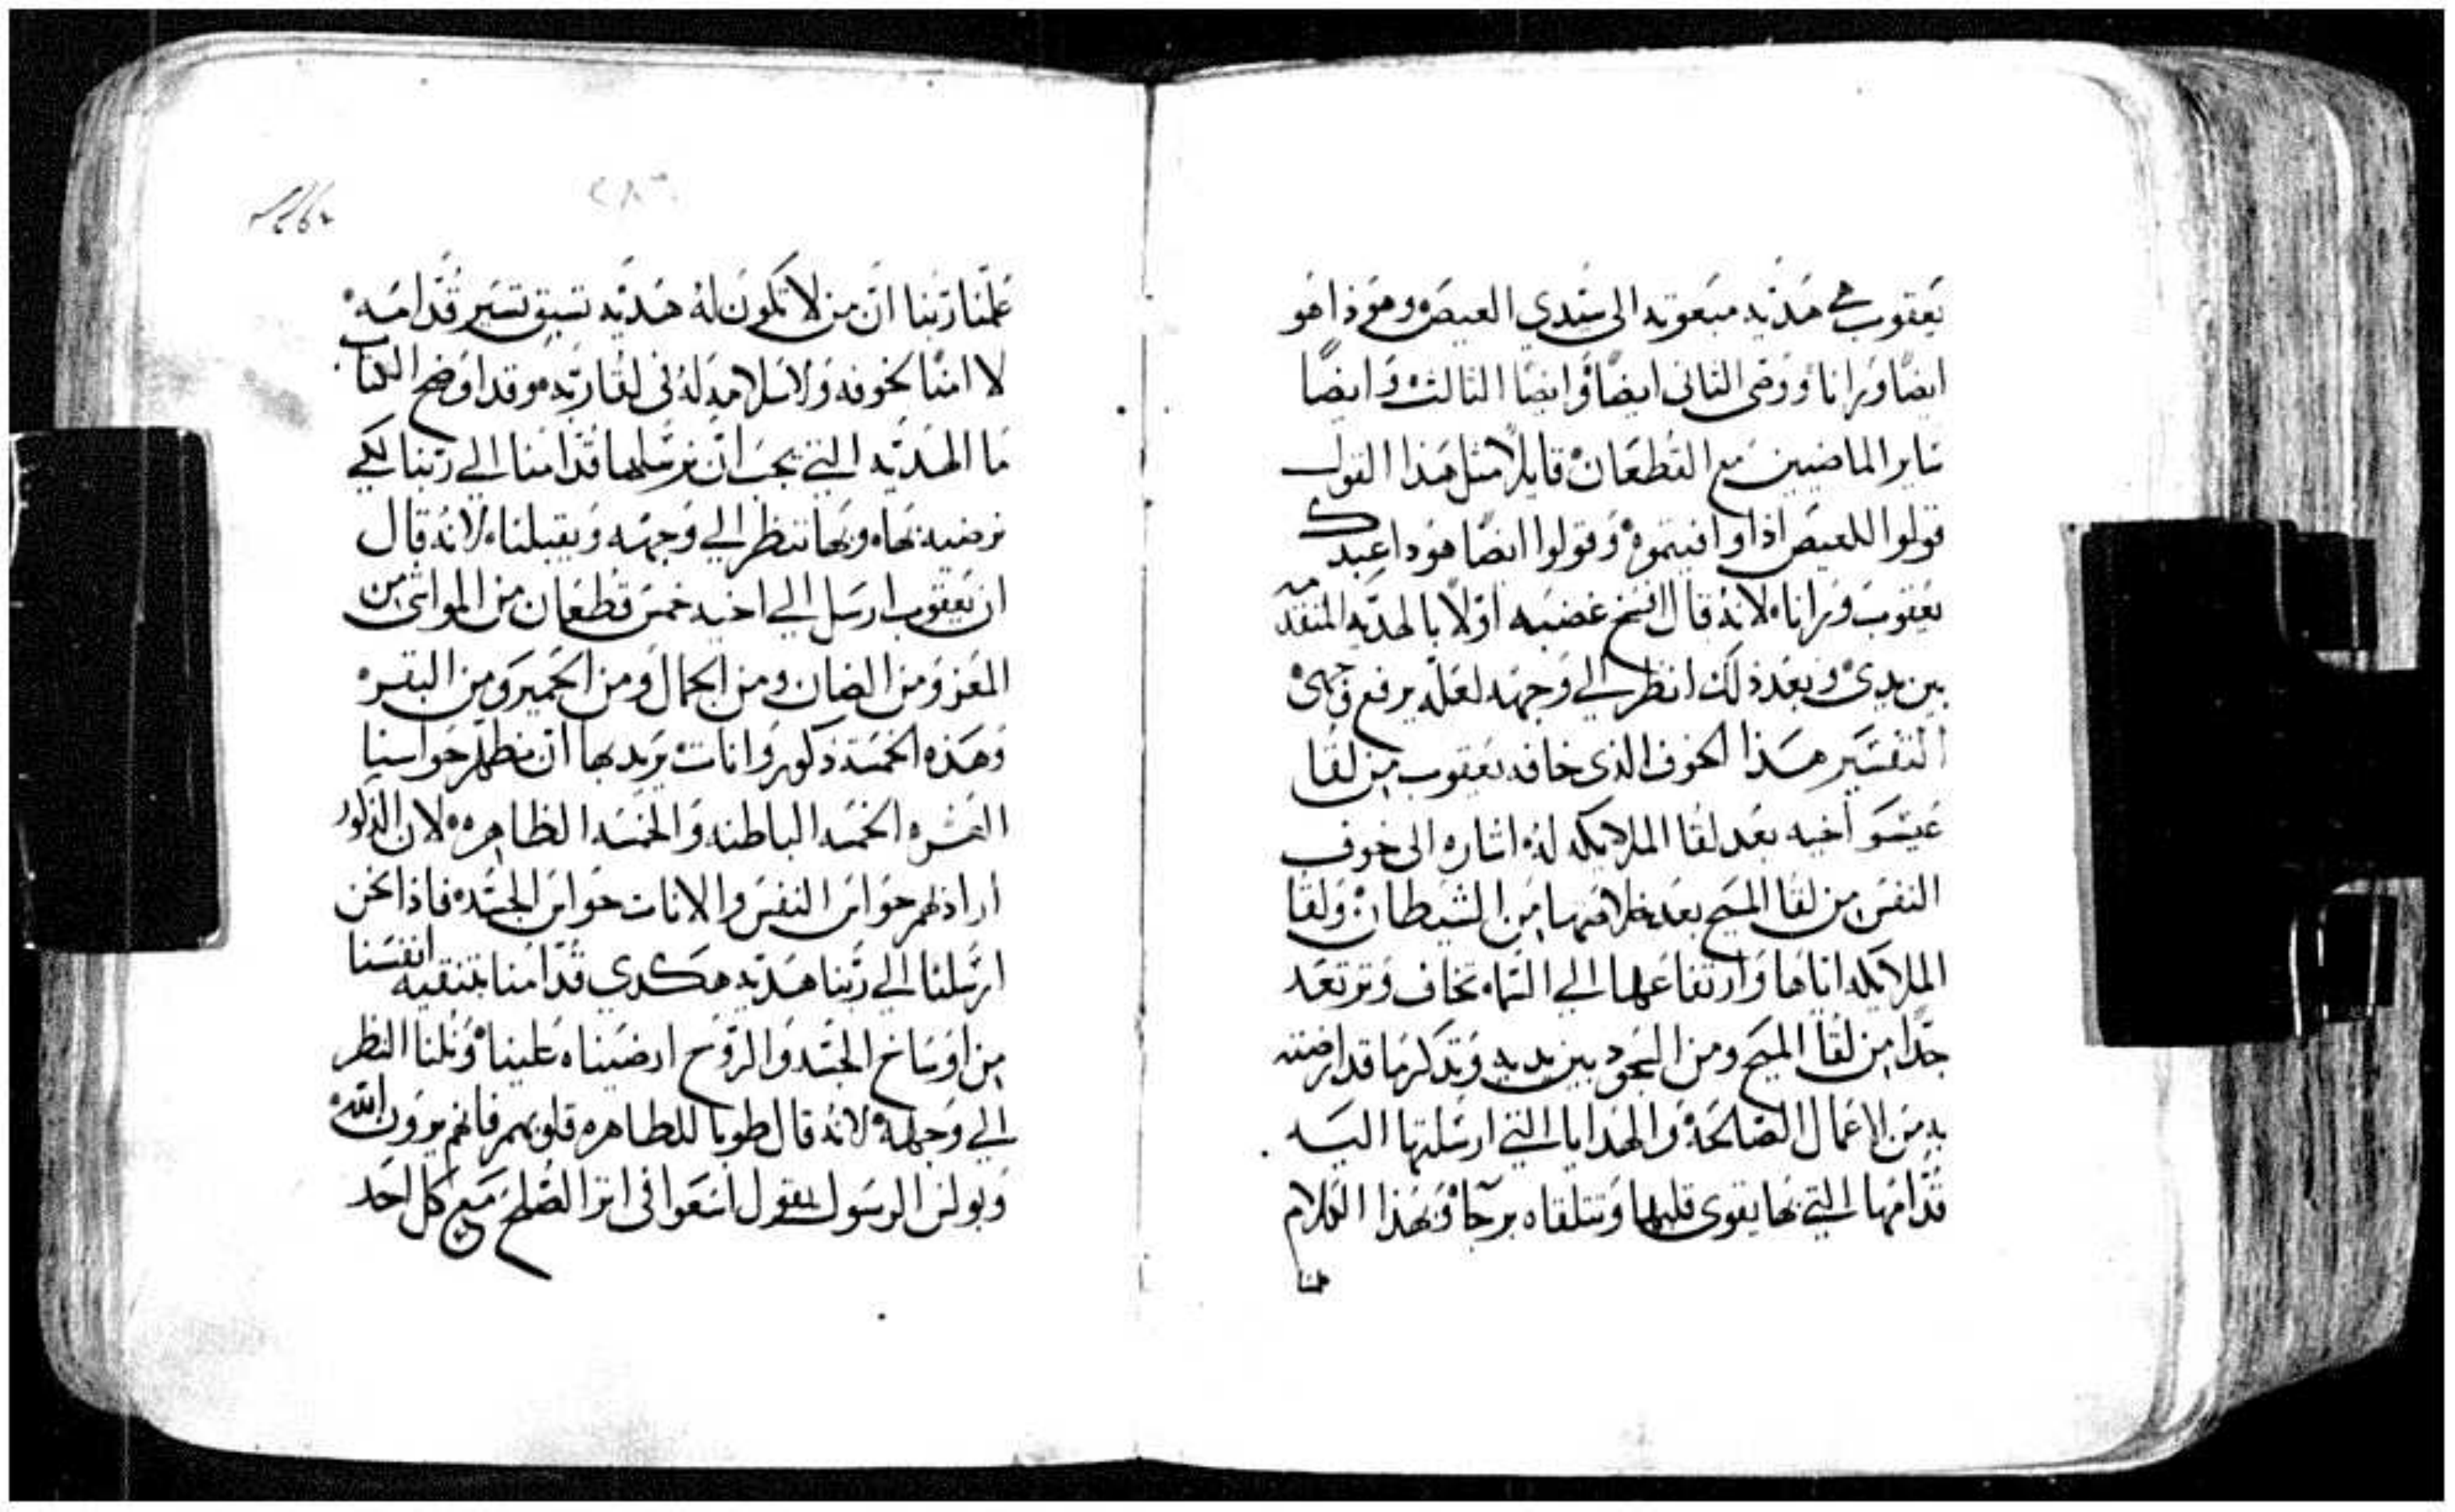 يعقوب هي هديه مبعوته الى سيدي العيص وهوذا هو
ايضا ورانا ووصى الثانى ايضا وايضا الثالث وايضا
ساير الماضيين مع القطعان قايلا مثل هذا القول
قولوا للعيص اذا وافيتموه وقولوا ايضا هوذا عبدك
يعقوب ورانا لانه قال افسخ غضبه اولا بالهديه المتقدمه
بين يدي وبعد ذلك انظر الي وجهه لعله يرفع وجهي
التفسير هذا الخوف الذى خافه يعقوب من لقا
عيسو اخيه بعد لقا الملايكه له اشاره الى خوف
النفس من لقا المسيح بعد خلاصها من الشيطان ولقا
الملايكه اياها وارتفاعها الي السما تخاف وترتعد
جدا من لقا المسيح ومن السجود بين يديه وتذكر ما قد ارضته
به من الاعمال الصالحه والهدايا التي ارسلتها اليه
قدامها التي بها يقوى قلبها وتتلقاه برجا وبهذا الكلام
علمنا
علمنا ربنا ان من لا تكون له هديه تسبق تسير قدامه
لا امنا لخوفه ولا سلامه له فى لقا ربه وقد اوضح الكتاب
ما الهديه التي يجب ان نرسلها قدامنا الي ربنا لكي
نرضيه بها وبها ننظر الي وجهه ويقبلنا لانه قال
ان يعقوب ارسل الي اخيه خمس قطعان من المواشى من
المعز ومن الضان ومن الجمال ومن الحمير ومن البقر
وهذه الخمسه ذكور واناث يريد بها ان نطهر حواسنا
العشره الخمسه الباطنه والخمسه الظاهره لان الذكور
اراد بهم حواس النفس والاناث حواس الجسد فاذا نحن
ارسلنا الي ربنا هديه هكدي قدامنا بتنقيه انفسنا
من اوساخ الجسد والروح ارضيناه علينا ونلنا النظر
الي وجهه لانه قال طوبا للطاهره قلوبهم فانهم يرون الله
وبولس الرسول يقول اسعوا فى اثر الصلح مع كل احد